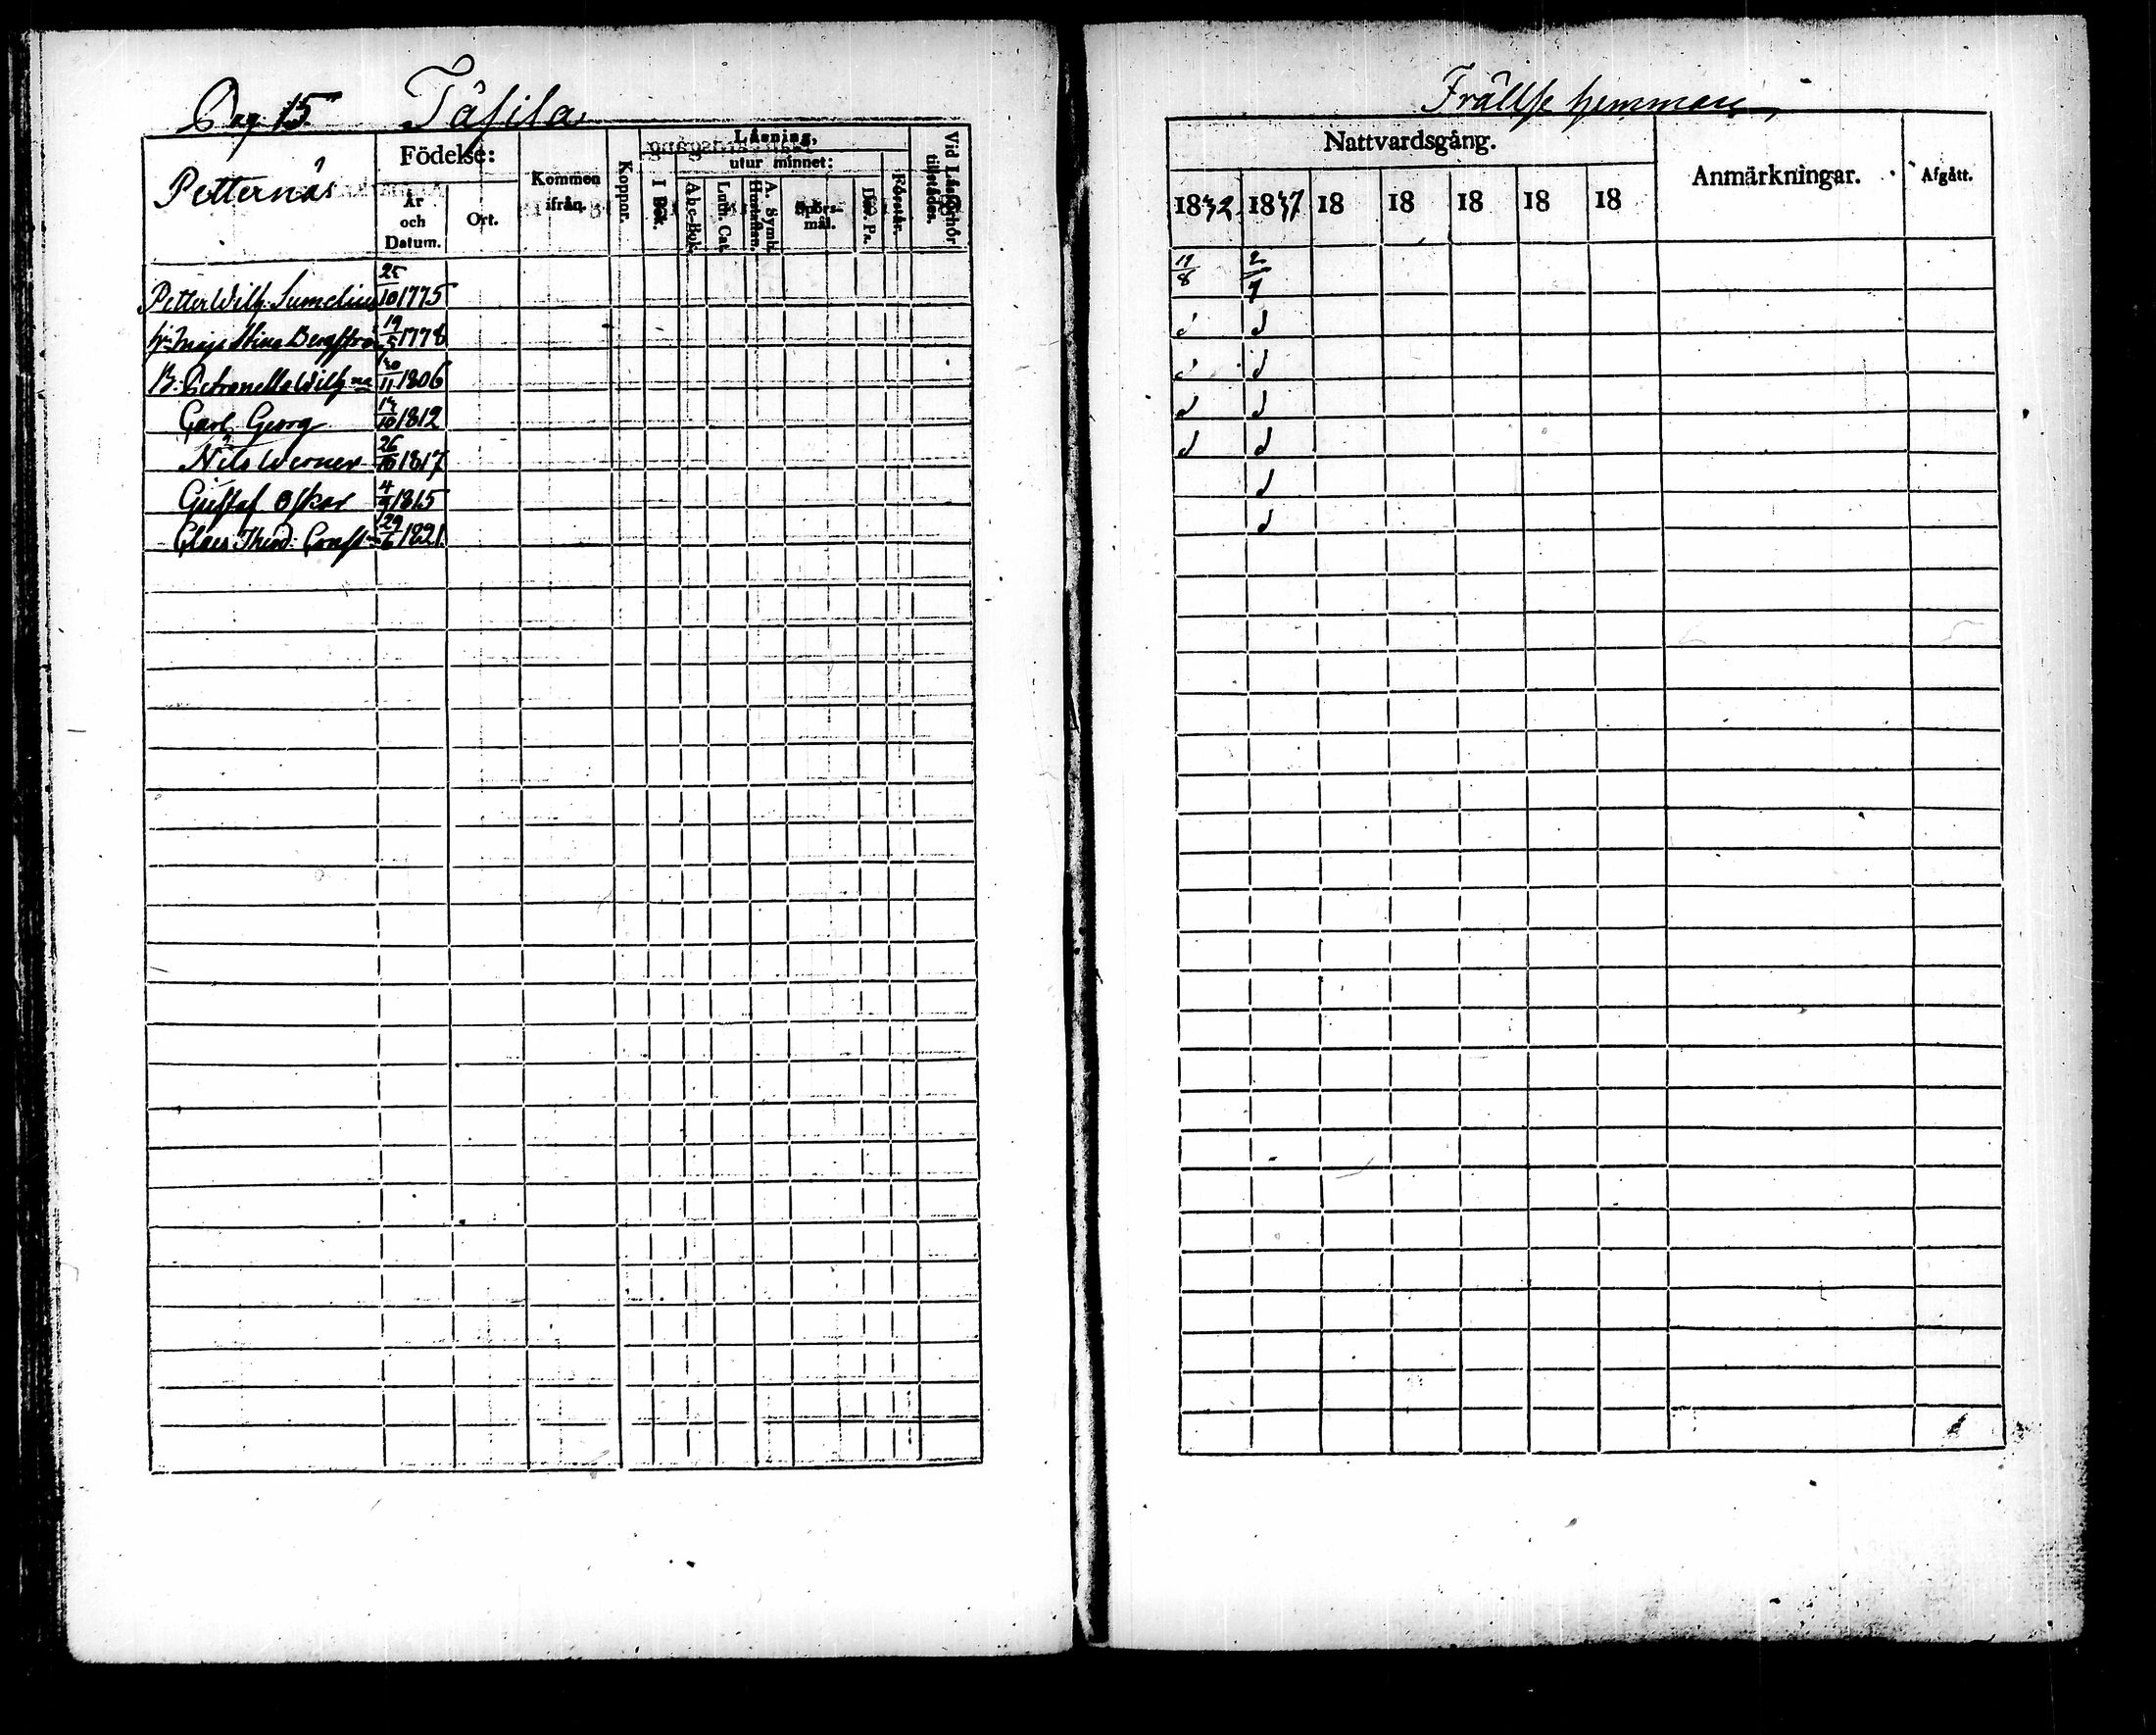 Pag 15. Täsilä
Petternäs
Födelse:
År och Datum.
Ort.
Kommen ifrån.
Koppor.
Läsning,
utur minnet:
I Bok.
Abc-Bok.
Luth. Cat.
A. Symb. Hustaflan.
Spörs-mål.
Dav. Ps.
Förstår.
Vid Läseförhör tillstädes.
Petter Wilh. Sumelius 25/10 1775
Maja Stina Bergström 19/5 1778
B. Petronella Wilhna 30/11 1806
Carl Georg 14/10 1812
Nils Werner 26/10 1817
Gustaf Oskar 4/9 1815
Claes Theod. Const 29/6 1821
Frällse hemman
Nattvardsgång.
Anmärkningar.
Afgått.
1832 1837 18 18 18 18 18
17/8 2/7